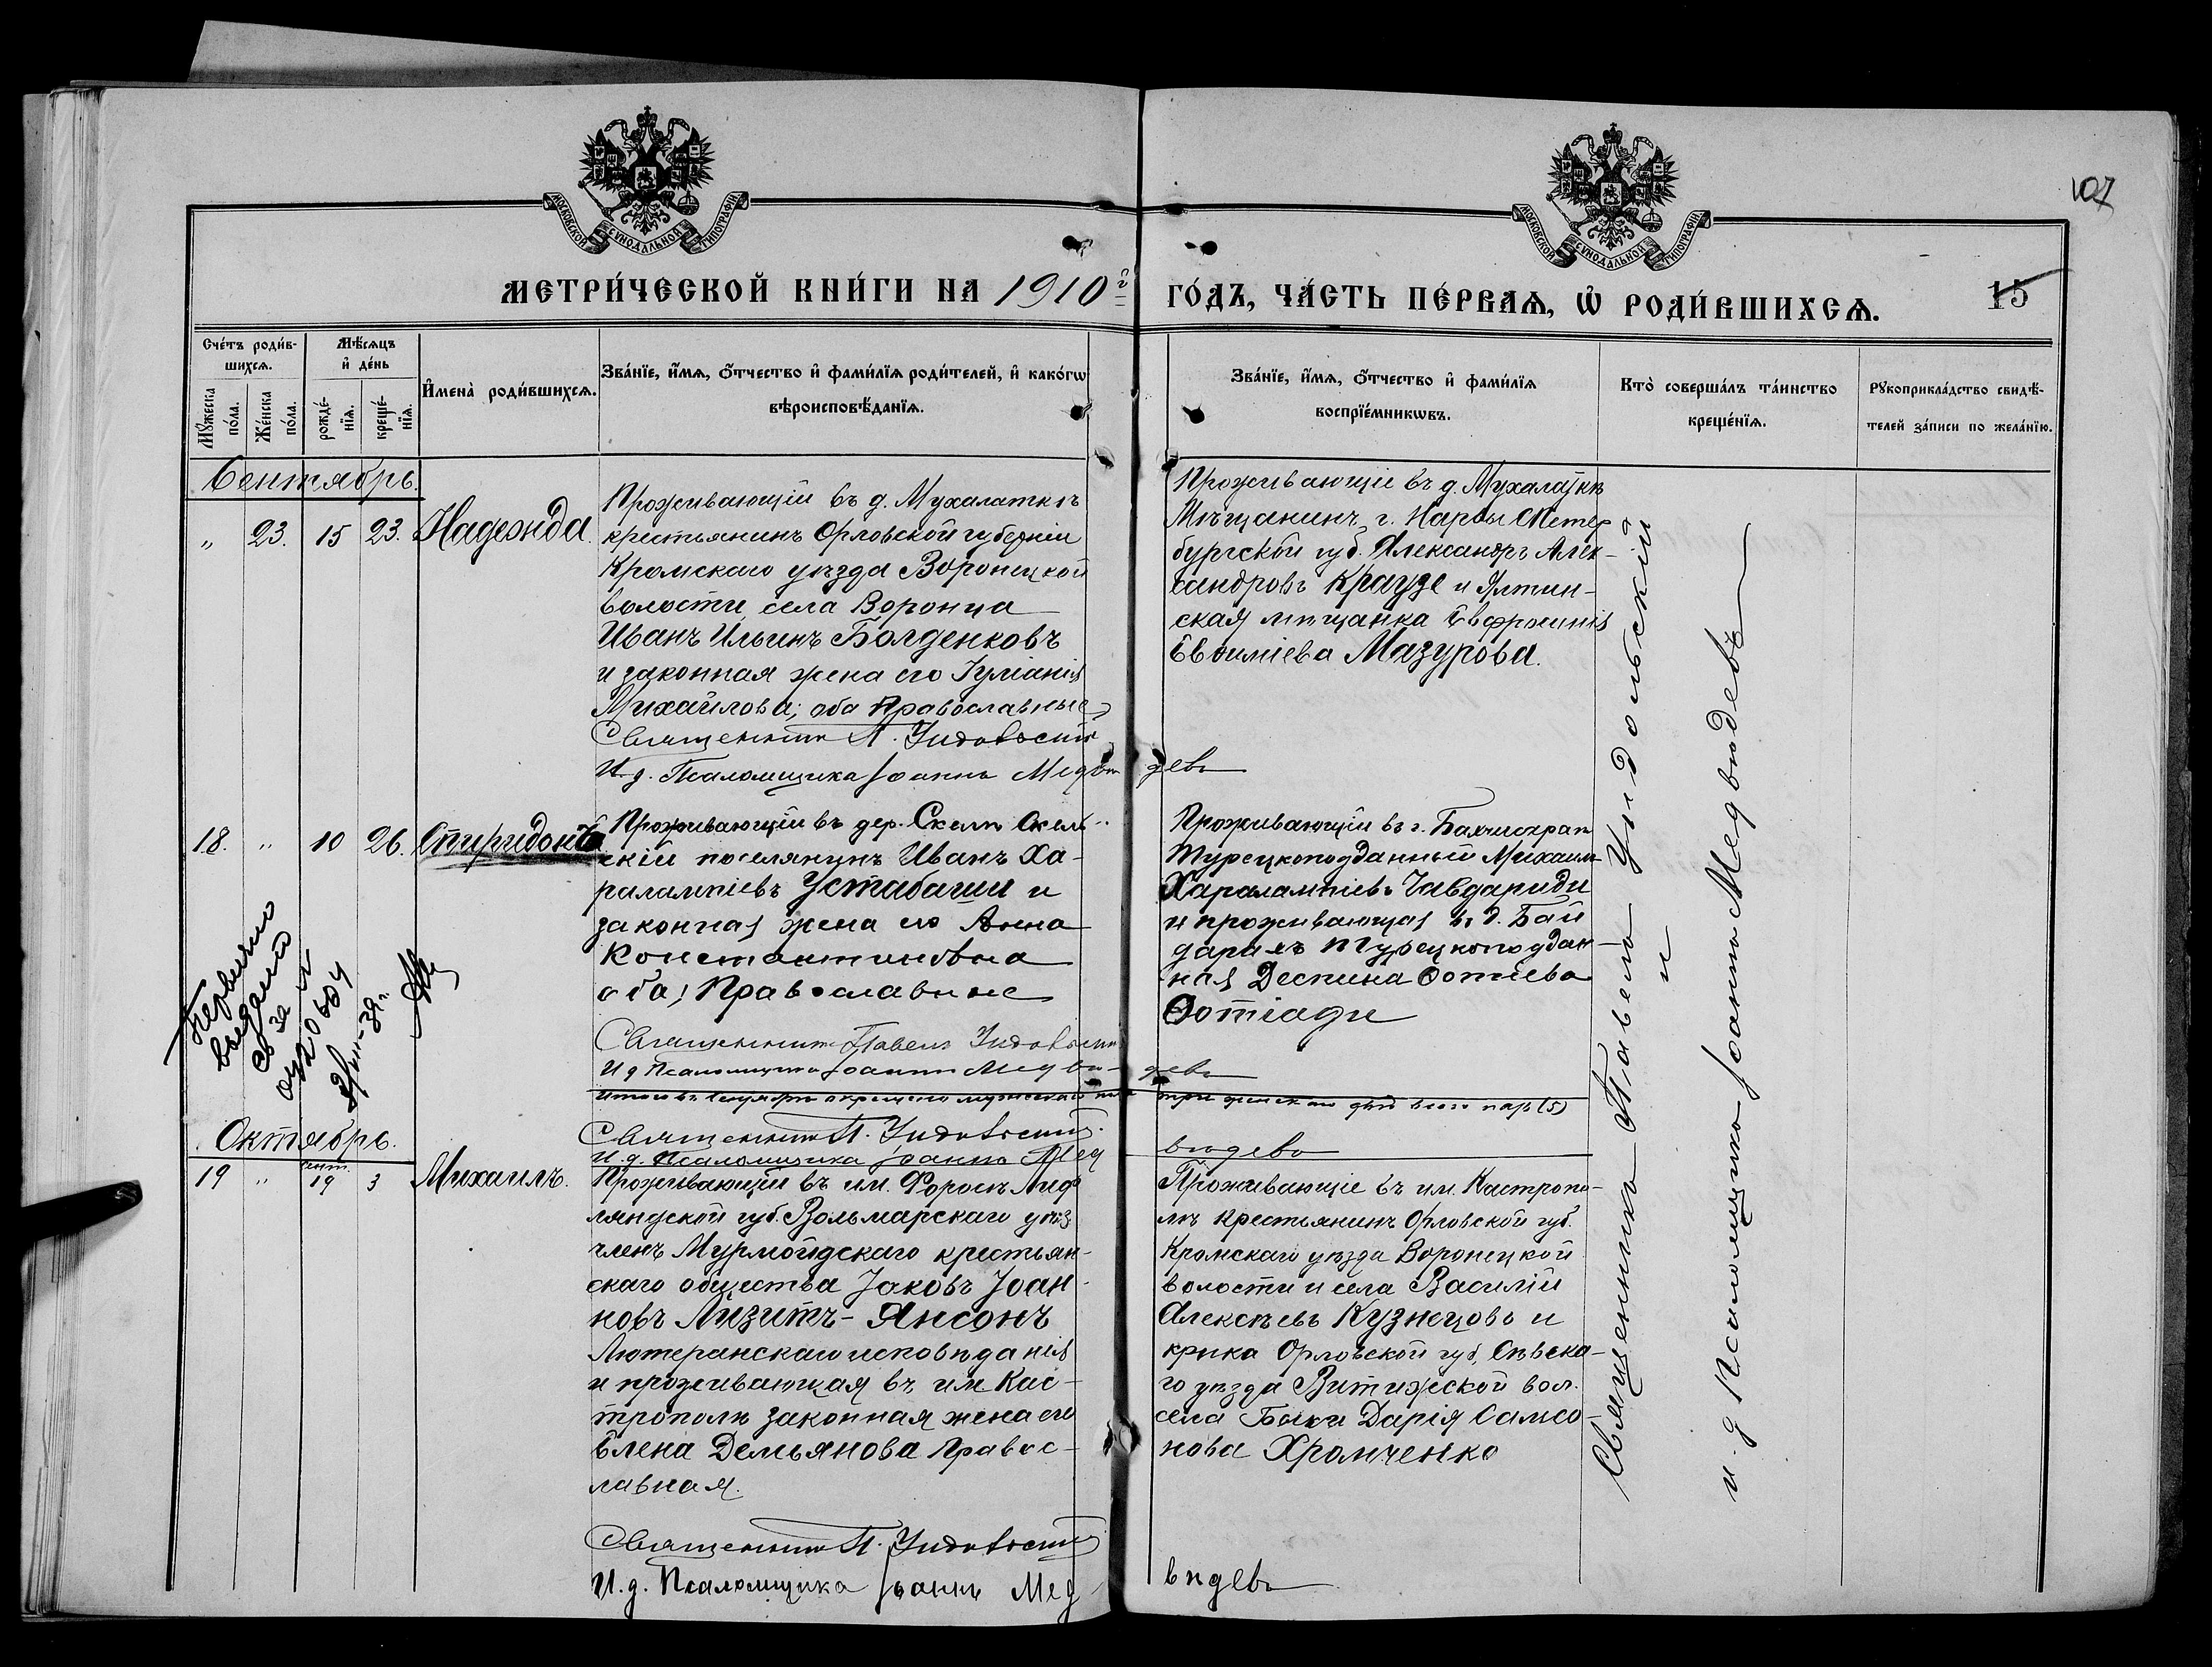 107
МОСКОВСКОЙ СѴНОДАЛЬНОЙ ТИПОГРАФІИ
МОСКОВСКОЙ СѴНОДАЛЬНОЙ ТИПОГРАФІИ
МЕТРИ́ЧЕСКОЙ КНИ́ГИ НА 1910 г
ГО́ДЪ, ЧА́СТЬ ПЕ́РВАѦ, Ѡ҆ РОДИ́ВШИХСѦ.
15
Сче́тъ роди́в-
шихсѧ.
Мꙋ́жеска по́ла.
Же́нска по́ла.
Мѣ́сѧцъ
и҆ де́нь
рожде́-
нїѧ.
креще́-
нїѧ.
И҆мена̀ роди́вшихсѧ.
Зва́нїе, и҆́мѧ, ѻ҆́тчество и҆ фами́лїѧ роди́телей, и҆ како́гѡ
вѣроисповѣ́данїѧ.
Зва́нїе, и҆́мѧ, ѻ҆́тчество и҆ фами́лїѧ
воспрїе́мникѡвъ.
Кто̀ соверша́лъ та́инство
креще́нїѧ.
Рꙋкоприкла́дство свидѣ́-
телей за́писи по жела́нїю.
Сентябрь.
" 23. 15 23. Надежда.
Проживающій въ д. Мухалаткѣ
крестьянинъ Орловской губерніи
Кромскаго уѣзда Воронецкой
волости, села Воронца
Иванъ Ильинъ Болденковъ
и законная жена его Іуліанія
Михайлова; оба Православные
Священникъ П. Ундольскій
И.д. Псаломщика Іоаннъ Медвѣдевъ
Проживающіе въ д. Мухалаткѣ
Мѣщанинъ г. Нарвы СПетер
бургской губ. Александръ Алек-
сандровъ Краузе и Ялтин-
ская мѣщанка Евфросинія
Евѳиміева Мазурова.
18. " 10 26. Спиридонъ
Проживающій въ дер. Скели Скель-
скій поселянинъ Иванъ Ха-
рлампіевъ Устабаши и
законная жена его Анна
Константиновна
оба, Православные
Священникъ Павелъ Ундольскій
И д Псаломщика Іоаннъ Медвѣ-девъ
Проживающій въ г. Бахчисараѣ
Турецкоподданный Михаилъ
Харалампіевъ Чавдариди
и проживающая въ д. Бай
дарахъ турецкоподдан-
ная Деспина Фотіева
Фотіади
Первично
выдано
св за №
Итого въ Сентябрѣ окрещено мужескаго пола три женскаго два всего пять (5)
Священникъ П. Ундольскій
И.д. Псаломщика Іоаннъ Медвѣдевъ
Октябрь.
19 " сент. 19 3 Михаилъ.
Проживающій въ им. Форосъ Лиф
ляндской губ. Вольмарскаго уѣз
членъ Мурмойдскаго крестьян-
скаго общества Іаковъ Іоан-
новъ Лизитъ-Янсонъ
Лютеранскаго исповѣданія
и проживающая въ им Кас-
трополѣ законная жена его
Елена Демьянова Правос-
лавная.
Священникъ П. Ундольскій
И.д. Псаломщика Іоаннъ Медвѣдевъ
Проживающіе въ им. Кастропо-
лѣ крестьянинъ Орловской губ.
Кромскаго уѣзда Воронецкой
волости и села Василій
Алексѣевъ Кузнецовъ и
крѣка Орловской губ, Сѣвска-
го уѣзда Витижской вол.
села Быки Дарія Самсо-
нова Хромченко
Священникъ Павелъ Ундольскій
и
и. д Псаломщика Іоаннъ Медвѣдевъ